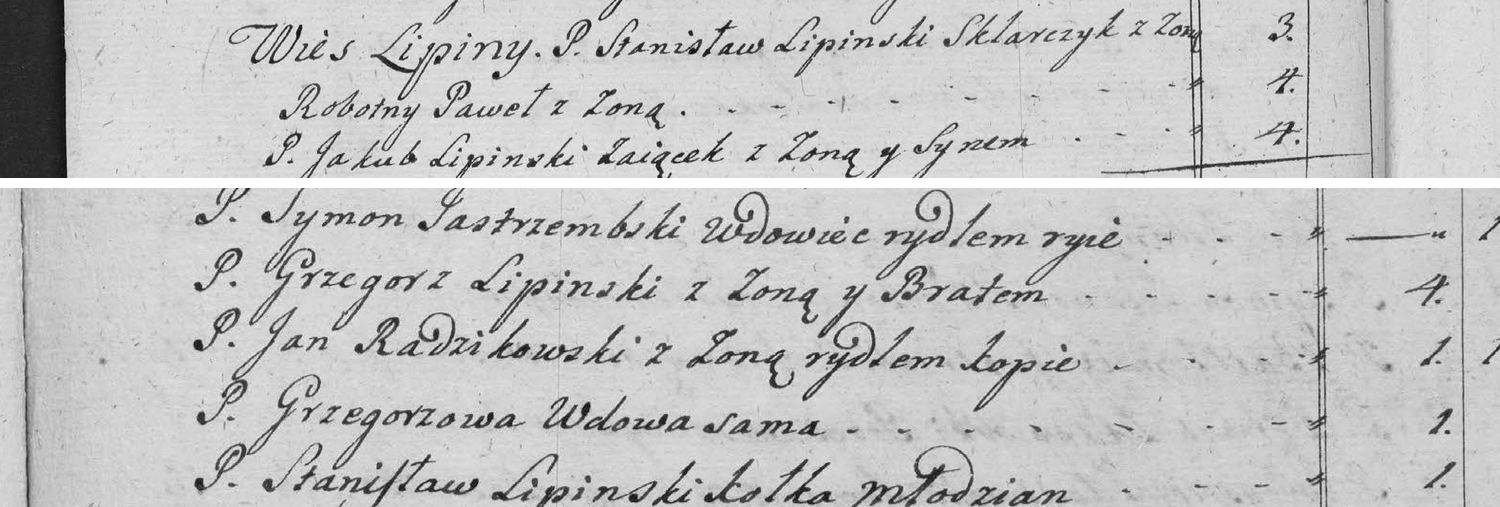 Wieś Lipiny. P. Stanisław Lipinski Sklarczyk z Zoną " 3.
Robotny Paweł z Zoną . - - - - - - - - " 4.
P. Jakub Lipinski Zaiącek z Zoną y Synem . - . " 4.
P. Symon Jastrzembski Wdowiec rydlem ryie - - - - " — " 1
P. Grzegorz Lipinski z Zoną y Bratem - - - - " 4.
P. Jan Radzikowski z Zoną rydlem kopie - - - - " 1. 1
P. Grzegorzowa Wdowa sama - - - - - - - " 1.
P. Stanisław Lipinski kotka młodzian - - - " 1.